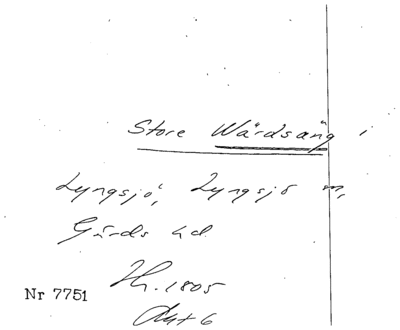 Store Wärdsäng i
Lyngsjö, Lyngsjö m,
Gärds hd.
Th. 1805
Akt 6
Nr 7751